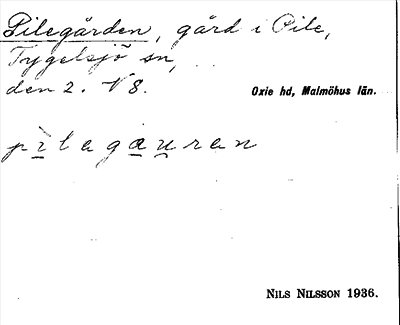 Pilegården, gård i Pile,
Tygelsjö sn,
den 2. N 8.
Oxie hd, Malmöhus län.
pìlagauran
NILS NILSSON 1936.